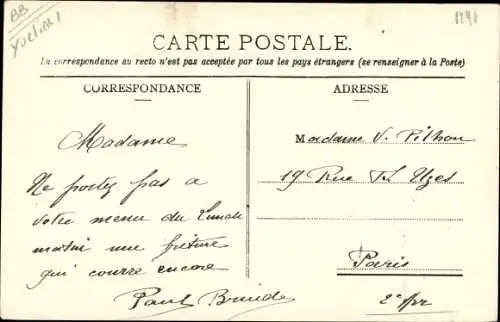 BB
Yvelines
1291
CARTE POSTALE.
La correspondance au recto n'est pas acceptée par tous les pays étrangers (se renseigner à la Poste)
CORRESPONDANCE
Madame
Ne portez pas a
votre menu du Lundi
matin une friture
qui courre encore
Paul
ADRESSE
Madame V. Pilhon
19 Rue d' Uzes
Paris
2e Arr